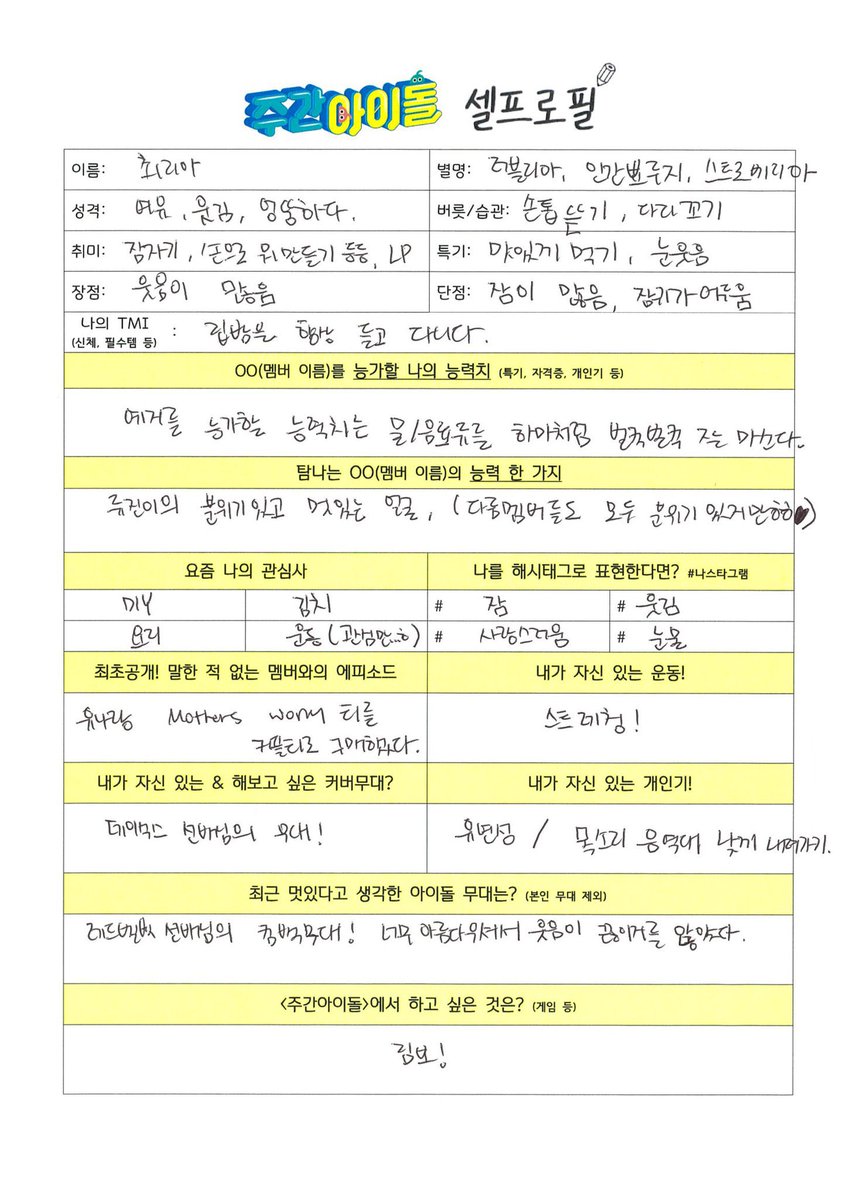 주간아이돌 셀프로필
이름: 최리아 별명: 러블리아, 인간뾰루지, 스트로베리아
성격: 여유, 웃김, 엉뚱하다. 버릇/습관: 손톱 뜯기, 다리꼬기
취미: 잠자기, 손으로 뭐만들기 등등, LP 특기: 맛있게 먹기, 눈웃음
장점: 웃음이 많음 단점: 잠이 많음, 잠귀가 어두움
나의 TMI : 립밤은 항상 들고 다니다.
(신체, 필수템 등)
OO(멤버 이름)를 능가할 나의 능력치 (특기, 자격증, 개인기 등)
예지를 능가할 능력치는 물/음료류를 하마처럼 벌컥벌컥 마신다.
탐나는 OO(멤버 이름)의 능력 한 가지
류진이의 분위기있고 멋있는 얼굴, (다름멤버들도 모두 분위기 있지만ㅎㅎ♥)
요즘 나의 관심사 나를 해시태그로 표현한다면? #나스타그램
DIY 김치 # 잠 # 웃김
요리 운동 (관심만..ㅎ) # 사랑스러움 # 눈물
최초공개! 말한 적 없는 멤버와의 에피소드 내가 자신 있는 운동!
유나랑 Mothers worry 티를 스트레칭!
커플티로 구매하였다.
내가 자신 있는 & 해보고 싶은 커버무대? 내가 자신 있는 개인기!
선배님의 무대! 유연성 / 목소리 음역대 낮게 내려가기.
최근 멋있다고 생각한 아이돌 무대는? (본인 무대 제외)
레드벨벳 선배님의 컴백무대! 너무 아름다우셔서 웃음이 끊이거를 않았다.
<주간아이돌>에서 하고 싶은 것은? (게임 등)
림보!